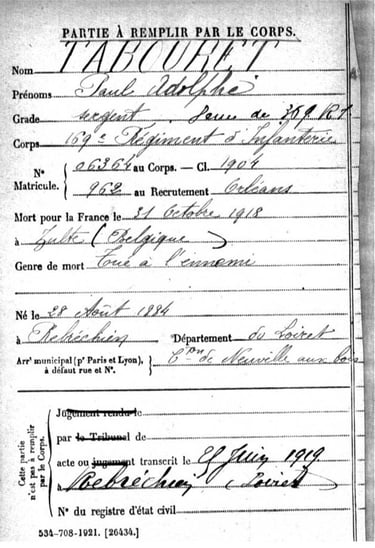 PARTIE À REMPLIR PAR LE CORPS.
Nom TABOURET
Prénoms Paul Adolphe
Grade sergent
Corps 169e Régiment d'Infanterie
N° 06364 au Corps. — Cl. 1904
Matricule. 962 au Recrutement Orléans
Mort pour la France le 31 Octobre 1918
à Zulte (Belgique)
Genre de mort Tué à l'ennemi
Né le 28 Août 1884
à Rebréchien Département du Loiret
Arrt municipal (pr Paris et Lyon), Con de Neuville aux bois
à défaut rue et N°.
Cette partie n'est pas à remplir par le Corps.
Jugement rendu le
par le Tribunal de
acte ou jugement transcrit le Juin 1919
à Rebréchien (Loiret)
N° du registre d'état civil
534-708-1921. [26434.]